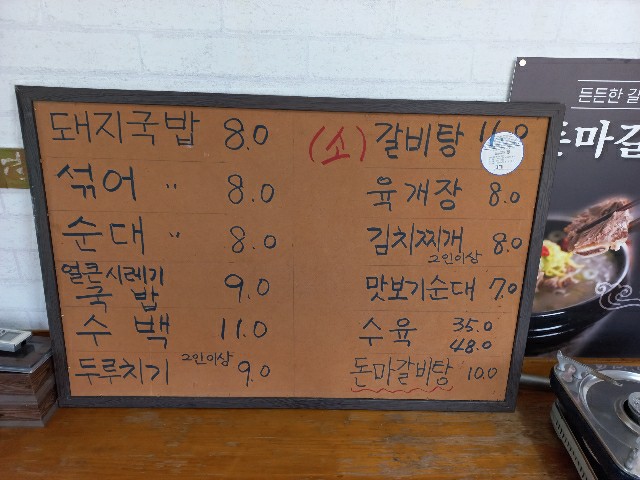 돼지국밥 8.0
섞어 〃 8.0
순대 〃 8.0
얼큰시레기
국밥 9.0
수백 11.0
두루치기 2인이상 9.0
(소) 갈비탕
육개장 8.0
김치찌개 8.0
2인이상
맛보기순대 7.0
수육 35.0
48.0
돈마갈비탕 10.0
든든한 갈
돈마갈